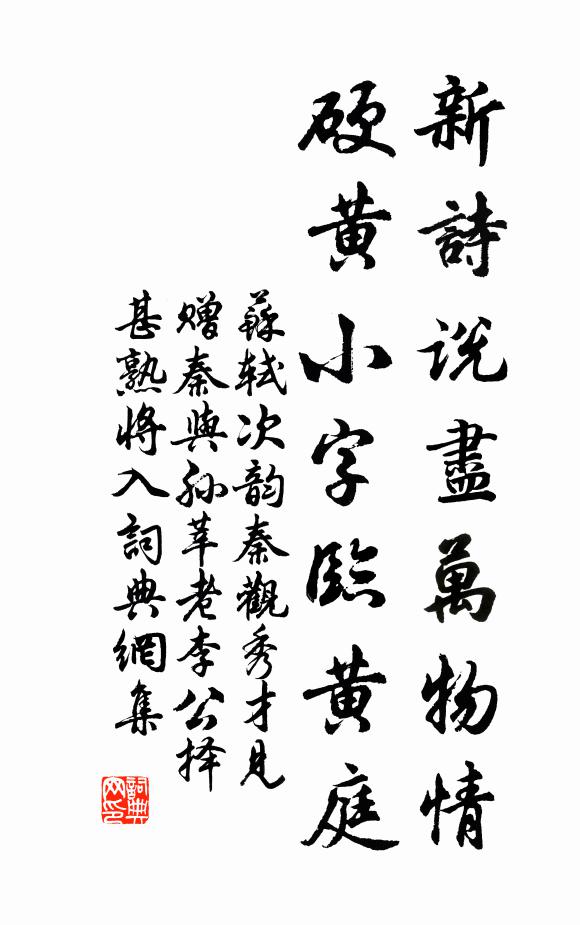 新詩說盡萬物情
硬黃小字臨黃庭
蘇軾次韵秦觀秀才見
赠秦與孙莘老李公择
甚熟將入詞典網集
詞典网印